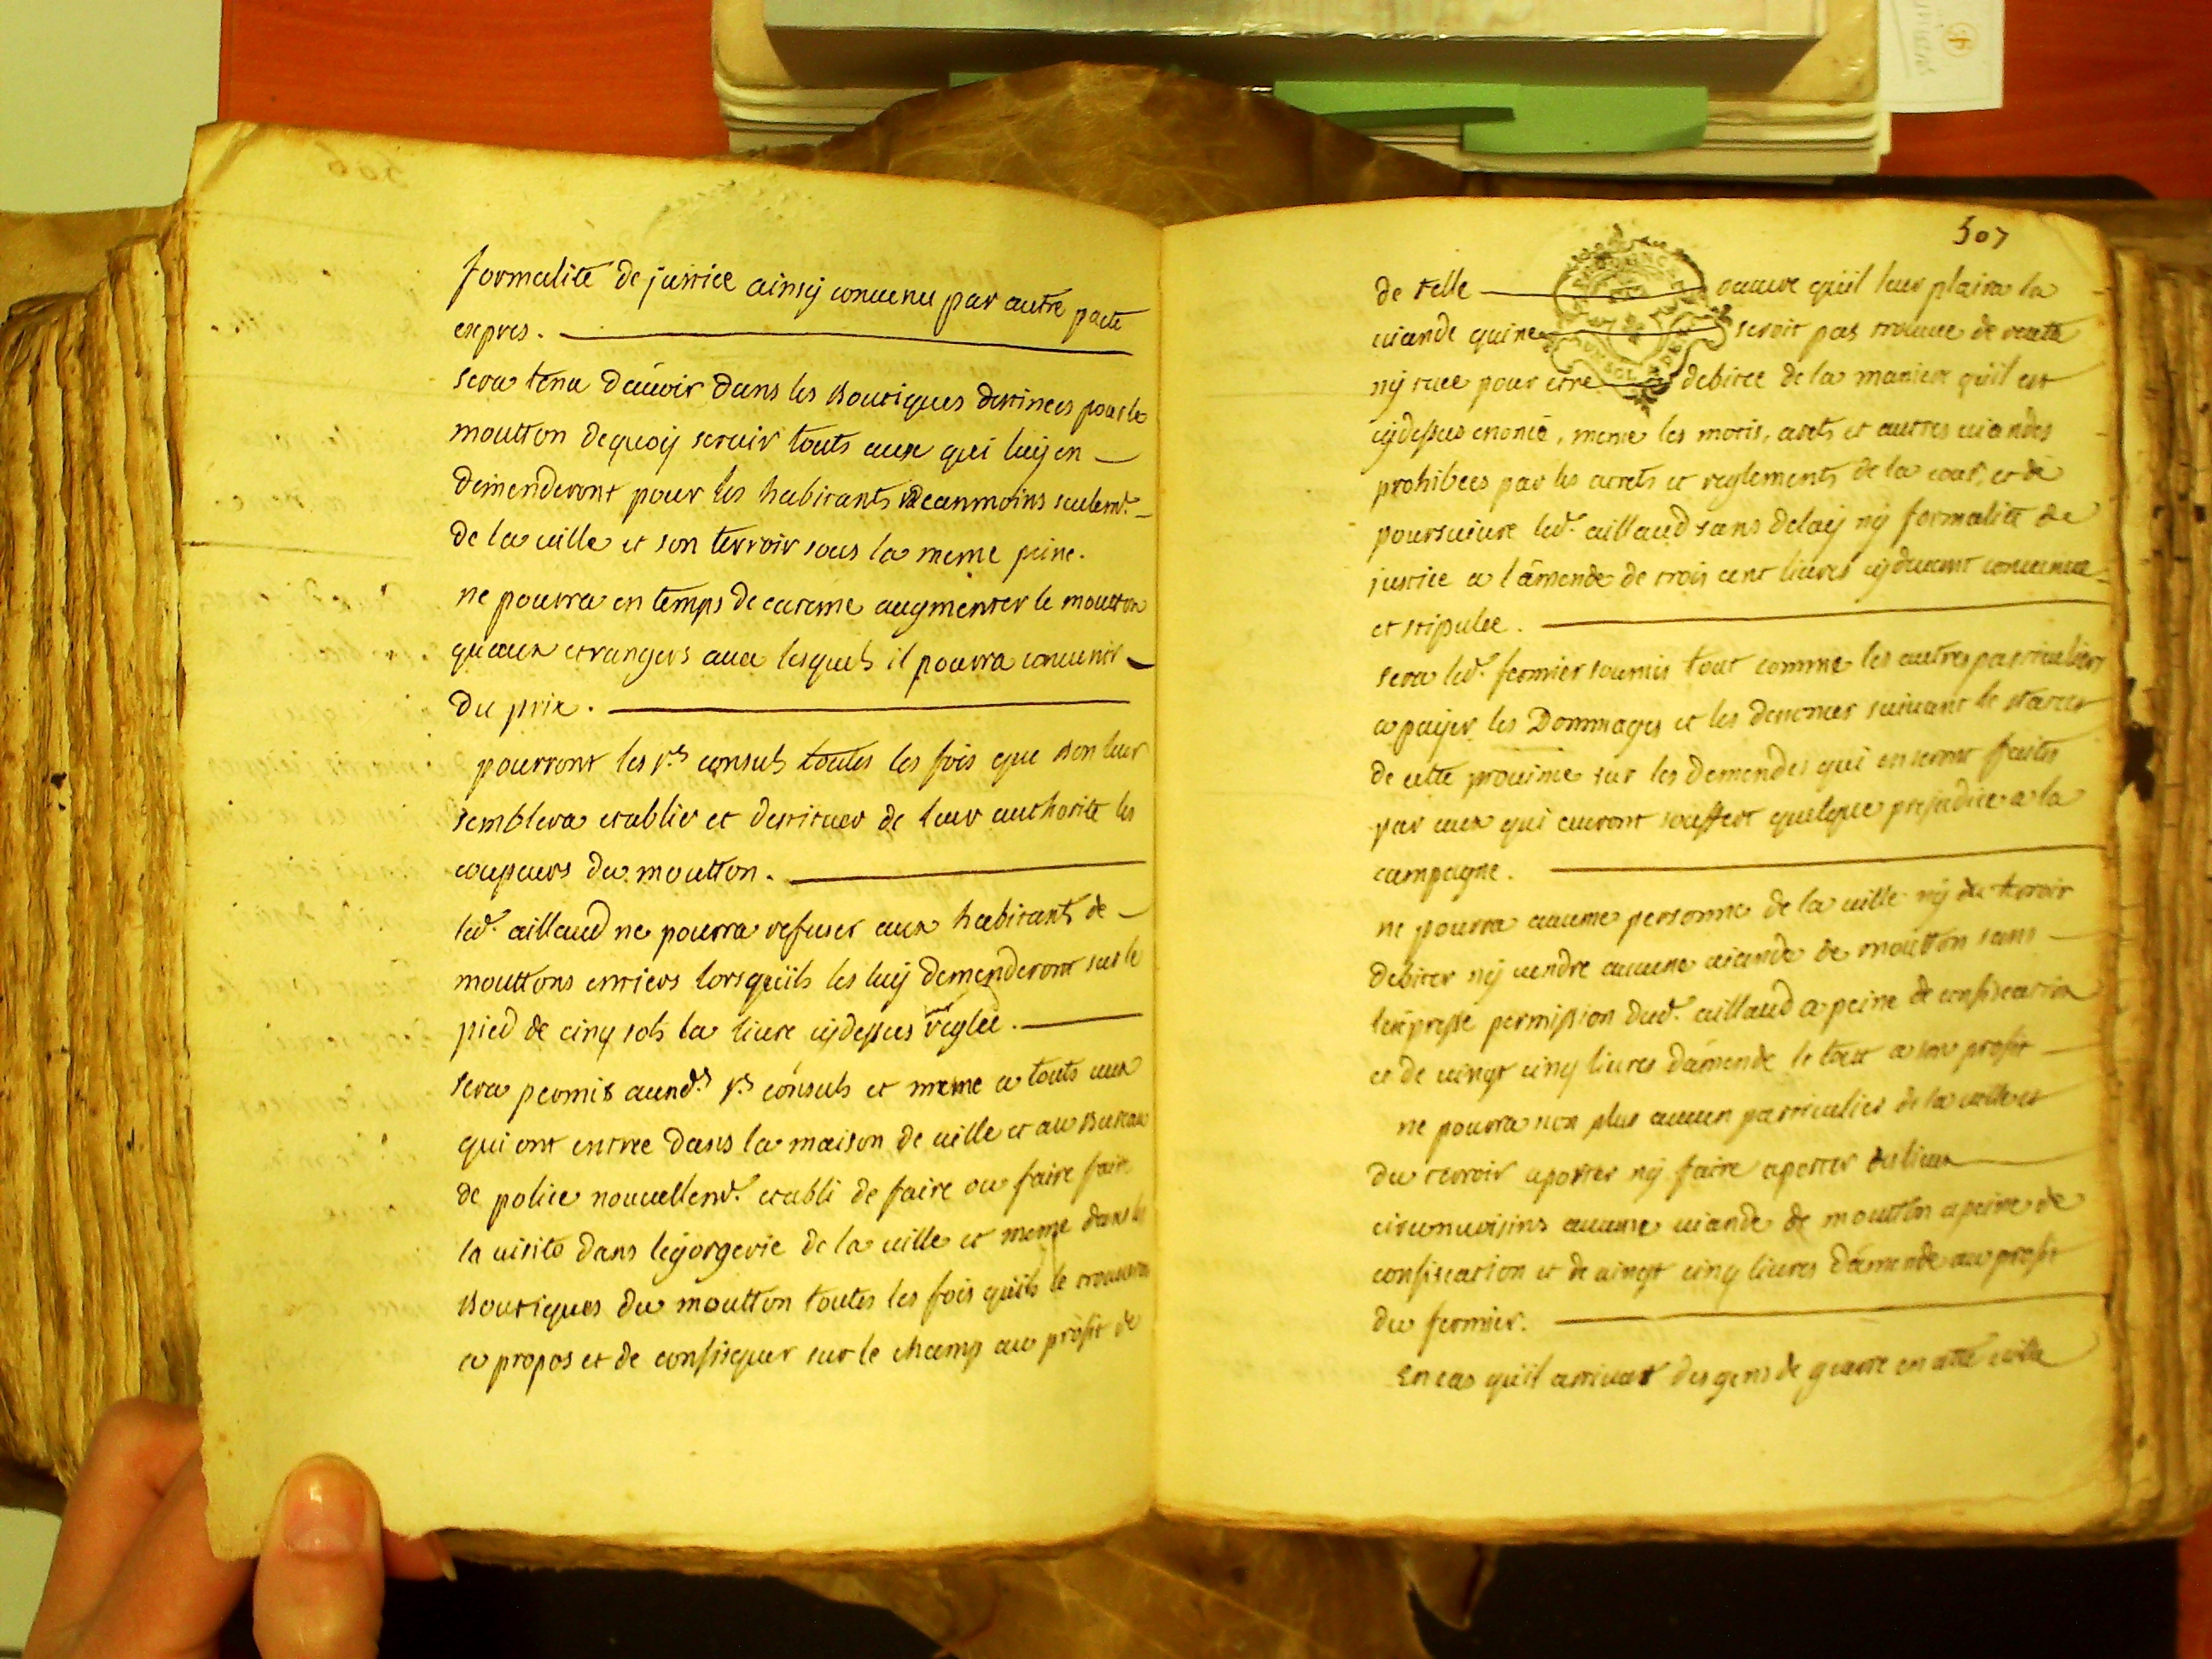 formalité de justice ainsy convenu par autre pacte
expres.
sera tenu d'avoir dans les Boutiques destinees pour le
moutton de quoy servir touts ceux qui luy en
demenderont pour les habitants neanmoins seulemt.
de la ville et son terroir sous la meme peine.
ne pourra en temps de careme augmenter le moutton
qu'aux etrangers avec lesquels il pourra convenir
du prix.
pourront les srs consuls toutes les fois que Bon leur
semblera etablir et destituer de leur authorité les
coupeurs du moutton.
led. aillaud ne pourra refuser aux habitants de
mouttons entiers lorsquils les luy demenderont sur le
pied de cinq sols la livre cydessus reglée.
sera permis auxds. srs consuls et meme a touts ceux
qui ont entree dans la maison de ville et au Bureau
de police nouvellemt. etabli de faire ou faire faire
la visite dans legorgerie de la ville et meme dans les
Boutiques du moutton toutes les fois quils le trouveront
a propos et de confisquer sur le champ au profit de
507
de telle oeuvre quil leur plaira la
viande qui ne seroit pas trouvee de vente
ny tuee pour etre debitee de la maniere quil est
cydessus enoncé, meme les motis, arets et autres viandes
prohibees par les arrets et reglements de la cour, et de
poursuivre led. aillaud sans delay ny formalité de
justice a l'amende de trois cent livres cydevant convenue
et stipulee.
sera led. fermier soumis tout comme les autres particuliers
a payer les Dommages et les denonces suivant le statut
de cette province sur les demendes qui en seront faites
par ceux qui auront souffert quelque prejudice a la
campagne.
ne pourra aucune personne de la ville ny du terroir
debiter ny vendre aucune viande de moutton sans
l'expresse permission dud. aillaud a peine de confiscation
et de vingt cinq livres d'amende le tout a son profit
ne pourra non plus aucun particulier de la ville et
du terroir aporter ny faire aporter des lieux
circonvoisins aucune viande de moutton a peine de
confiscation et de vingt cinq livres d'amende au profit
du fermier.
En cas quil arrivat des gens de guerre en cette ville